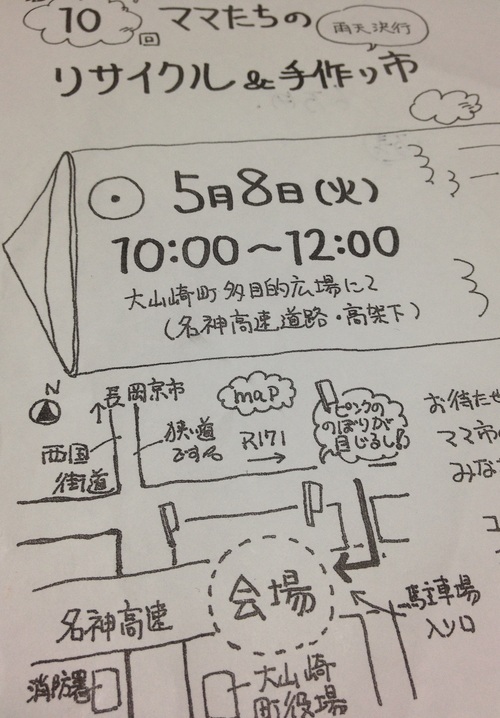 10回 ママたちの
雨天決行
リサイクル&手作り市
5月8日(火)
10:00〜12:00
大山崎町 多目的広場にて
(名神高速道路・高架下)
N
長岡京市
map
ピンクの
のぼりが
目じるし!!
西国
街道
狭い道
ですね
R171
お待たせ
ママ市
みな
会場
名神高速
駐車場
入り口
消防署
大山崎
町役場